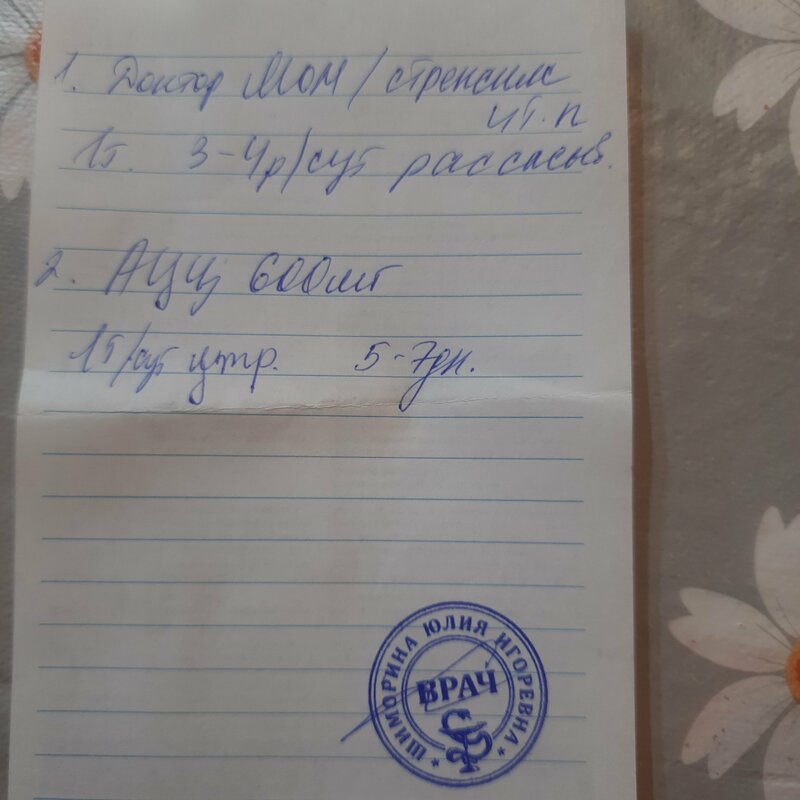 1. Доктор МОМ / стрепсилс
и т. п
1т. 3-4р/сут рассасыв.
2. АЦЦ 600мг
1т/сут утр. 5-7дн.
ШИМОРИНА ЮЛИЯ ИГОРЕВНА
ВРАЧ